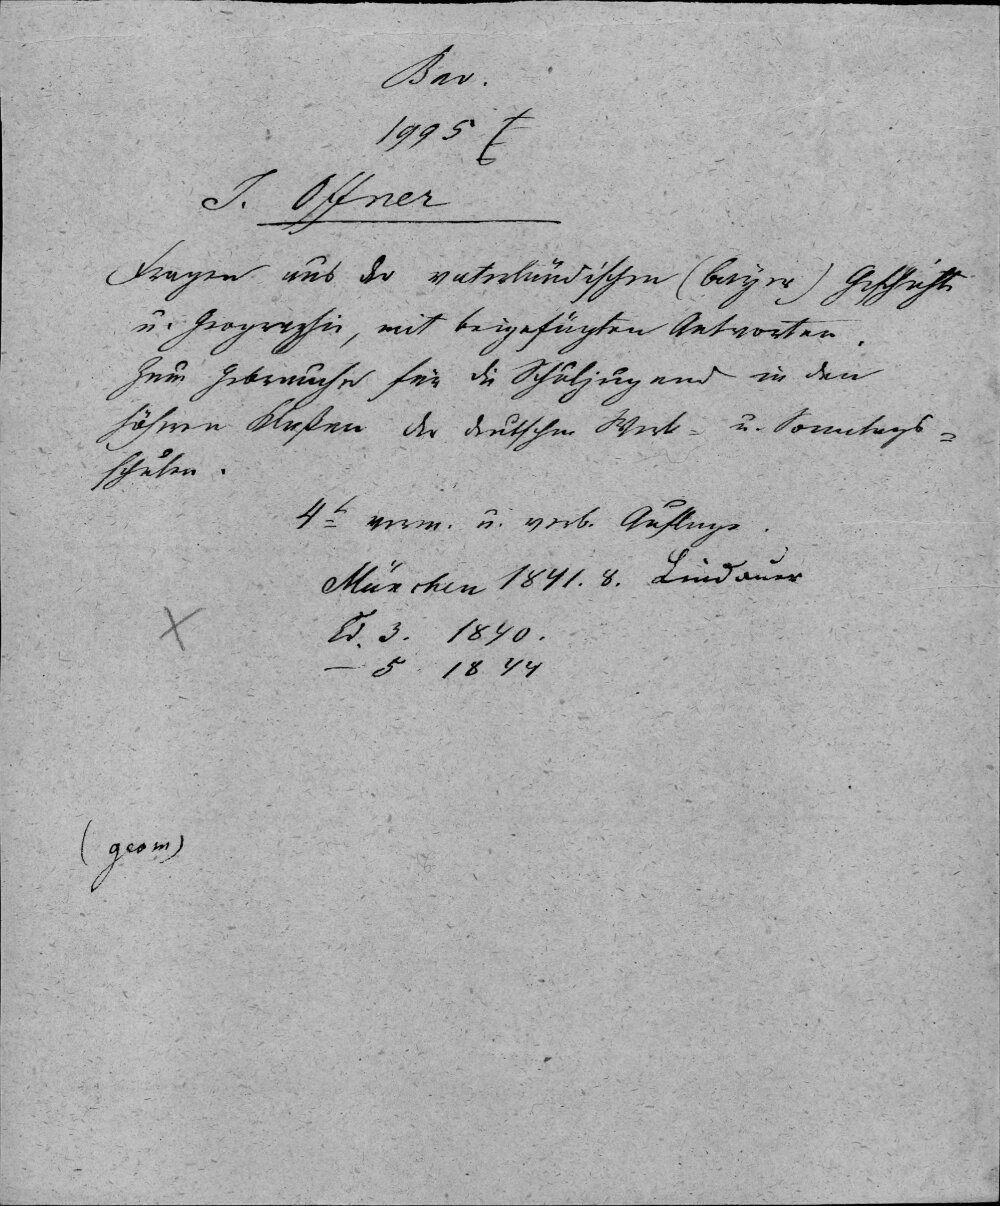 Bav.
1995 t
J. Offner
Fragen aus der vaterländischen (bayer.) Geschichte
u. Geographie, mit beigefügten Antworten.
Zum Gebrauche für die Schuljugend in den
höheren Klaßen der deutschen Werk- u. Sonntags-
schulen.
4te verm. u. verb. Auflage.
München 1841. 8. Lindauer
Ed. 3. 1840.
— 5 1844
(geom)